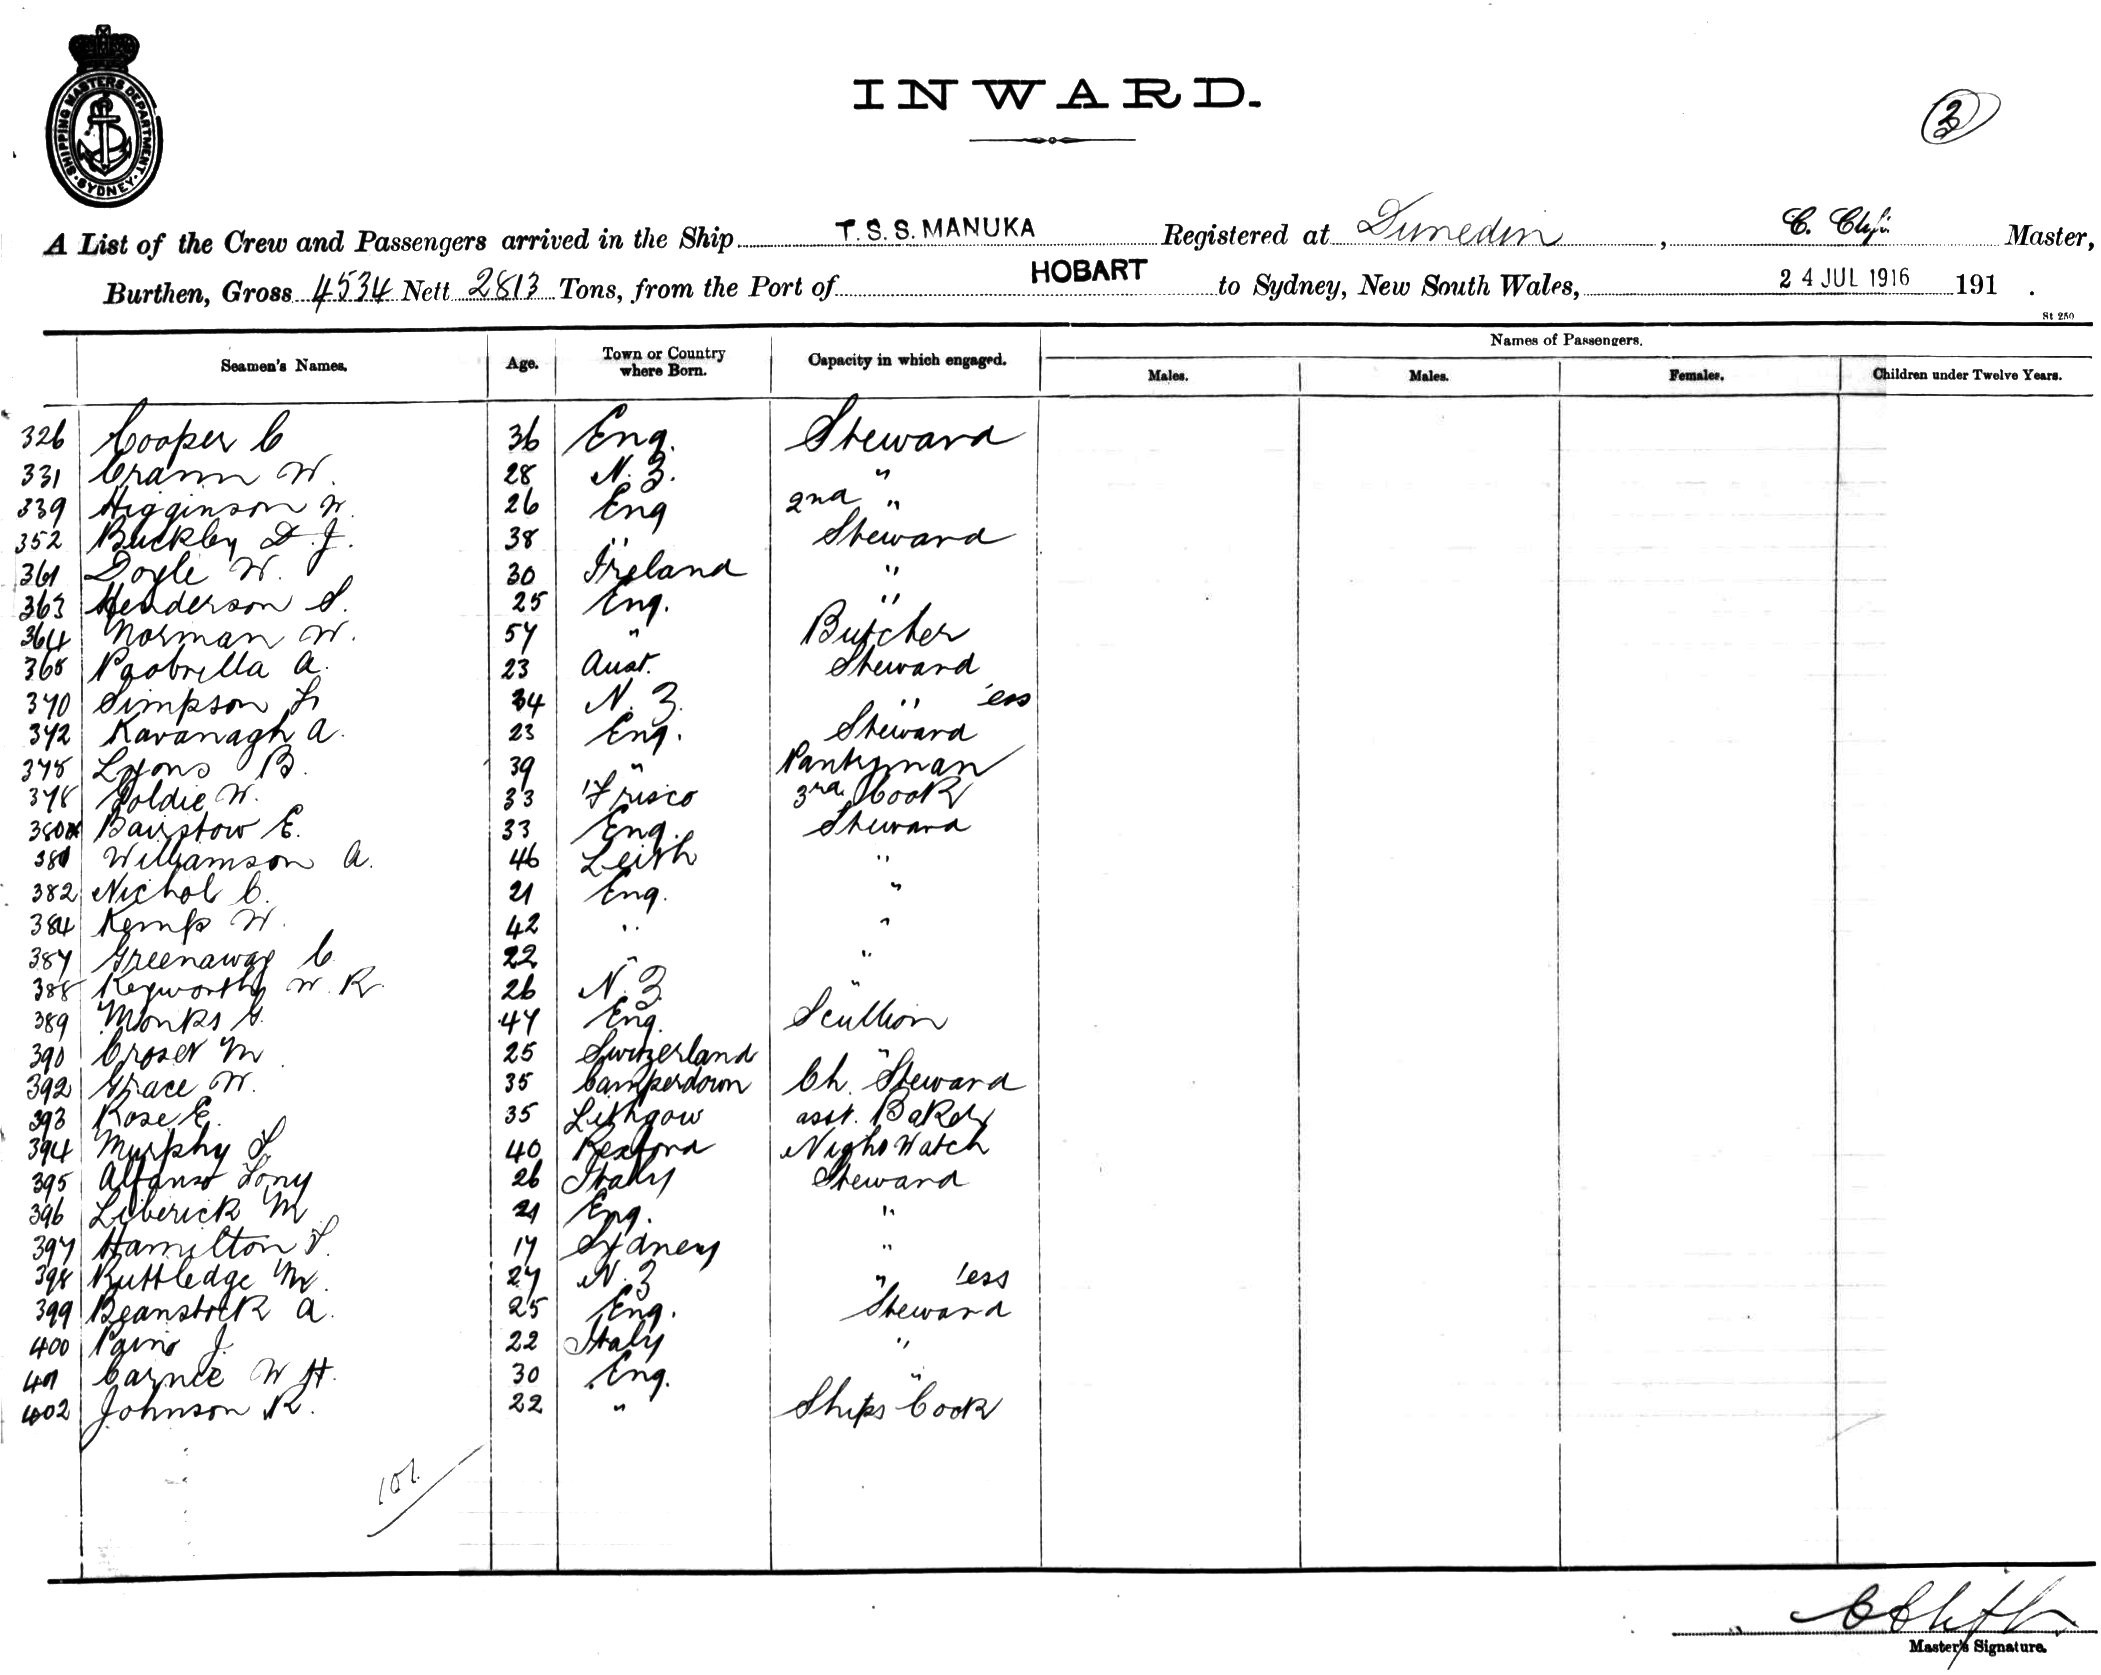 SHIPPING MASTERS DEPARTMENT
SYDNEY
INWARD.
3
A List of the Crew and Passengers arrived in the Ship T.S.S. MANUKA Registered at Dunedin, C. Master,
Burthen, Gross 4534 Nett 2813 Tons, from the Port of HOBART to Sydney, New South Wales, 24 JUL 1916 191 .
St 250
Seamen's Names. Age. Town or Country where Born. Capacity in which engaged. Names of Passengers.
Males. Males. Females. Children under Twelve Years.
326 Cooper C 36 Eng. Steward
331 Crann W. 28 N.Z. "
339 Higginson W. 26 Eng 2nd "
352 Buckley D.J. 38 " Steward
361 Doyle W. 30 Ireland "
363 Henderson S. 25 Eng. "
364 Norman W. 57 " Butcher
368 A. 23 Aust. Steward
370 Simpson 34 N.Z. " 'ess
372 Kavanagh A. 23 Eng. Steward
375 Lyons B. 39 " Pantryman
378 Goldie W. 33 'Frisco 3rd Cook
380 Bairstow E. 33 Eng. Steward
381 Williamson A. 46 Leith "
382 Nichol C. 21 Eng. "
384 Kemp W. 42 " "
387 Greenaway C. 22 " "
388 Kegworth W.R. 26 N.Z. "
389 Monks G. 47 Eng. Scullion
390 Croset M 25 Switzerland "
392 Grace W. 35 Camperdown Ch. Steward
393 Rose E. 35 Lithgow asst. Baker
394 Murphy 40 Night Watch
395 Alfanso Tony 26 Italy Steward
396 Liberick M 21 Eng. "
397 Hamilton 17 Sydney "
398 Ruttledge M. 27 N.Z " 'ess
399 Beanstock A. 25 Eng. Steward
400 J. 22 Italy "
401 Carnie W H. 30 Eng. "
402 Johnson R. 22 " Ships Cook
Master's Signature.